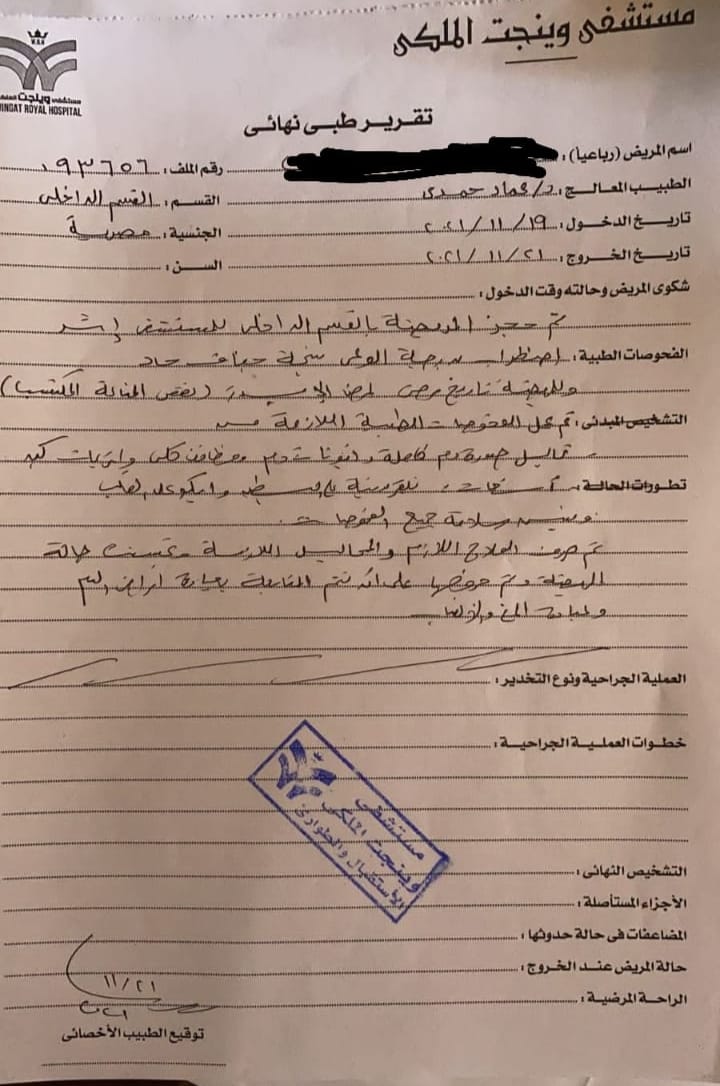 مستشفى وينجت الملكى
W.R.H
مستشفى وينجت الملكى
WINGAT ROYAL HOSPITAL
تقرير طبى نهائى
اسم المريض (رباعيا) :
رقم الملف : ٠٩٣٦٥٦
الطبيب المعالج : د/ عماد حمدى
القسم : القسم الداخلى
تاريخ الدخول : ٢٠٢١/١١/١٩
الجنسية : مصرية
تاريخ الخروج : ٢٠٢١/١١/٢١
السن :
شكوى المريض وحالته وقت الدخول :
تم حجز المريضة بالقسم الداخلى للمستشفى إثر
الفحوصات الطبية : اضطراب بدرجة الوعى نتيجة جفاف حاد
وللمريضة تاريخ مرضى لمرض الإيدز (نقص المناعة المكتسبة)
التشخيص المبدئى : تم عمل الفحوصات الطبية اللازمة من
تحاليل صورة دم كاملة و وظائف كلى وانزيمات كبد
تطورات الحالة : على القلب
وتبين سلامة جميع الفحوصات
تم صرف العلاج اللازم والمحاليل اللازمة وتحسنت حالة
المريضة وتم خروجها على أن تتم المتابعة بعيادة أمراض الدم
وعيادة المخ والأعصاب
العملية الجراحية ونوع التخدير :
خطوات العملية الجراحية :
مستشفى
وينجت الملكى
الاستقبال والطوارئ
التشخيص النهائى :
الأجزاء المستأصلة :
المضاعفات فى حالة حدوثها :
حالة المريض عند الخروج :
الراحة المرضية :
١١/٢١
٢٠٢١
توقيع الطبيب الأخصائى